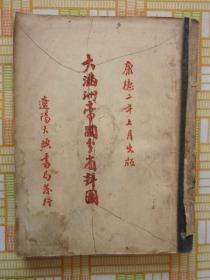 康德二年七月出版
大満洲帝國分省詳圖
遼陽大興書局發行